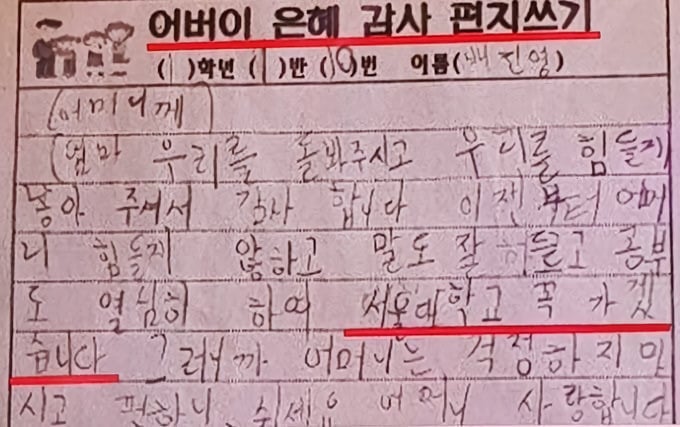 어버이 은혜 감사 편지쓰기
(1)학년 (1)반 (10)번 이름(배진영)
(어머니께)
(엄마 우리를 돌봐주시고 우리를 힘들지
놓아 주셔서 감사 합니다 이젠부터 어머
니 힘들지 않하고 말도 잘 하들고 공부
도 열심히 하여 서울대학교 꼭 가겠
습니다 그러니까 어머니는 걱정하지 마
시고 편하니 쉬세요 어머니 사랑합니다